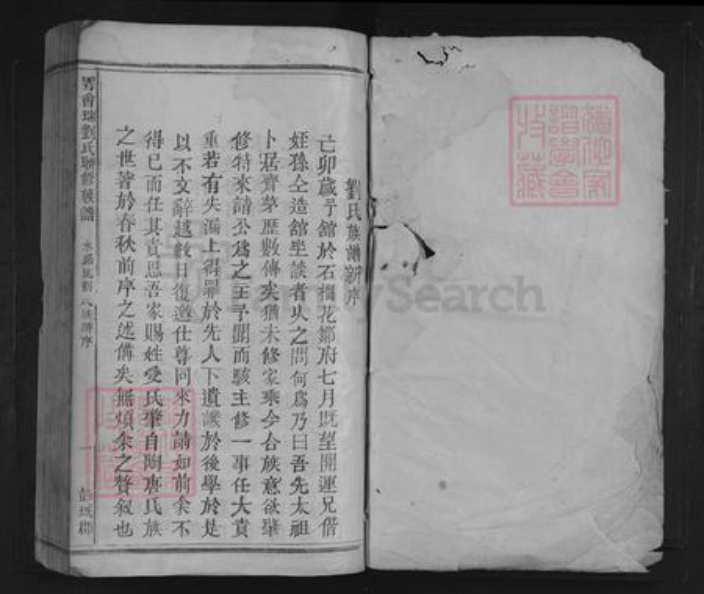 劉氏族譜新序
己卯歲予舘於石榴花鄒府七月既望開運兄偕
姪孫仝造舘坐談者久之問何爲乃曰吾先太祖
卜居齊茅歷數傳矣猶未修家乘今合族意欲肇
修特來請公爲之主予聞而駭主修一事任大責
重若有失漏上得罪於先人下遺譏於後學於是
以不文辭越數日復邀仕尊同來力請如前余不
得已而任其責思吾家賜姓受氏肇自陶唐氏族
之世著於春秋前序之述備矣無煩余之贅敘也
劉氏聯修族譜
族譜序
彭城郡
FamilySearch